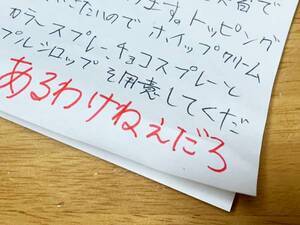 ます。トッピング
たいので ホイップクリーム
カラースプレー、チョコスプレーと
プルシロップを用意してくだ
あるわけねえだろ